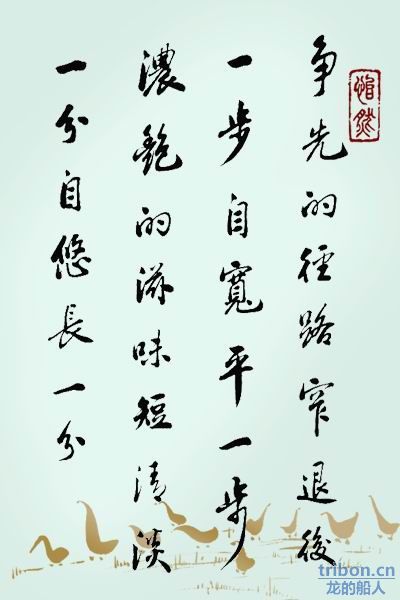 争先的徑路窄退後
一步自寬平一步
濃艷的滋味短清淡
一分自悠長一分
tribon.cn
龙的船人